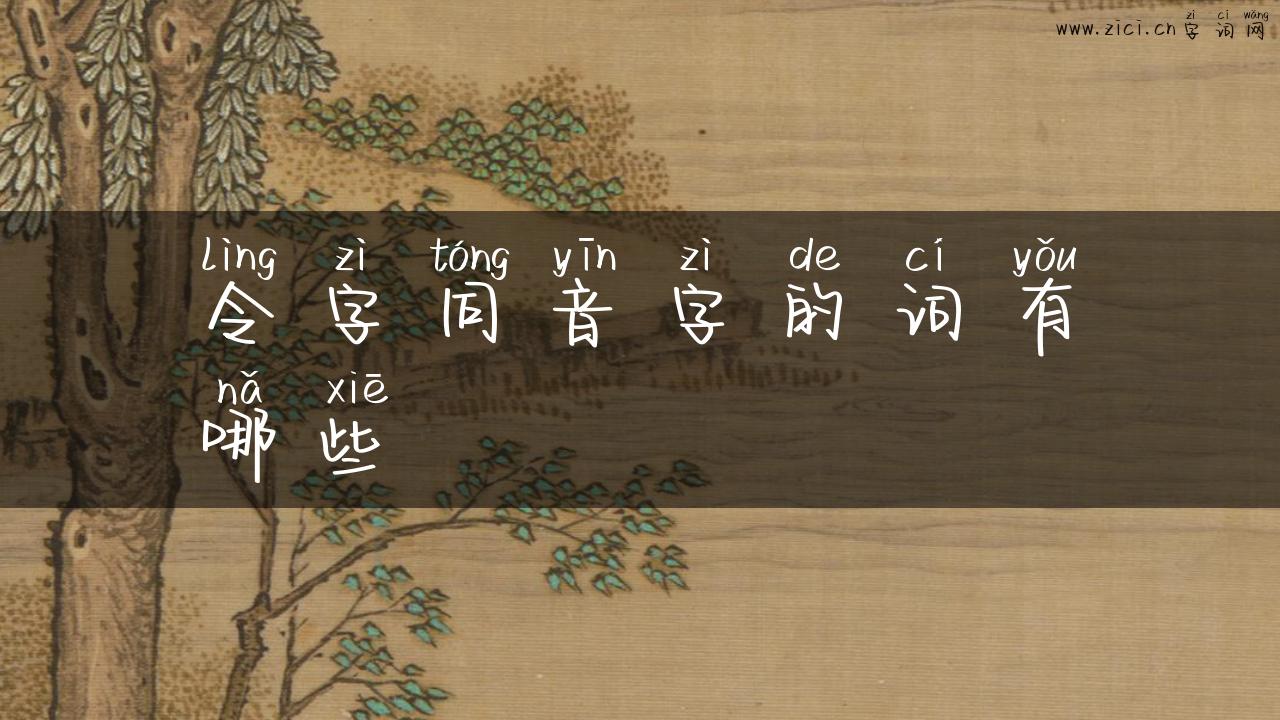 zì cí wǎng
www.zici.cn 字词网
lìng zì tóng yīn zì de cí yǒu
令字同音字的词有
nǎ xiē
哪些